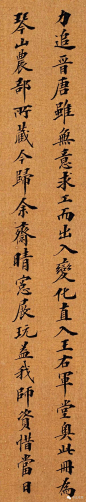 力追晉唐雖無意求工而出入變化直入王右軍堂奧此冊為
琴山農部所藏今歸余齋晴窗展玩益我師資惜當日